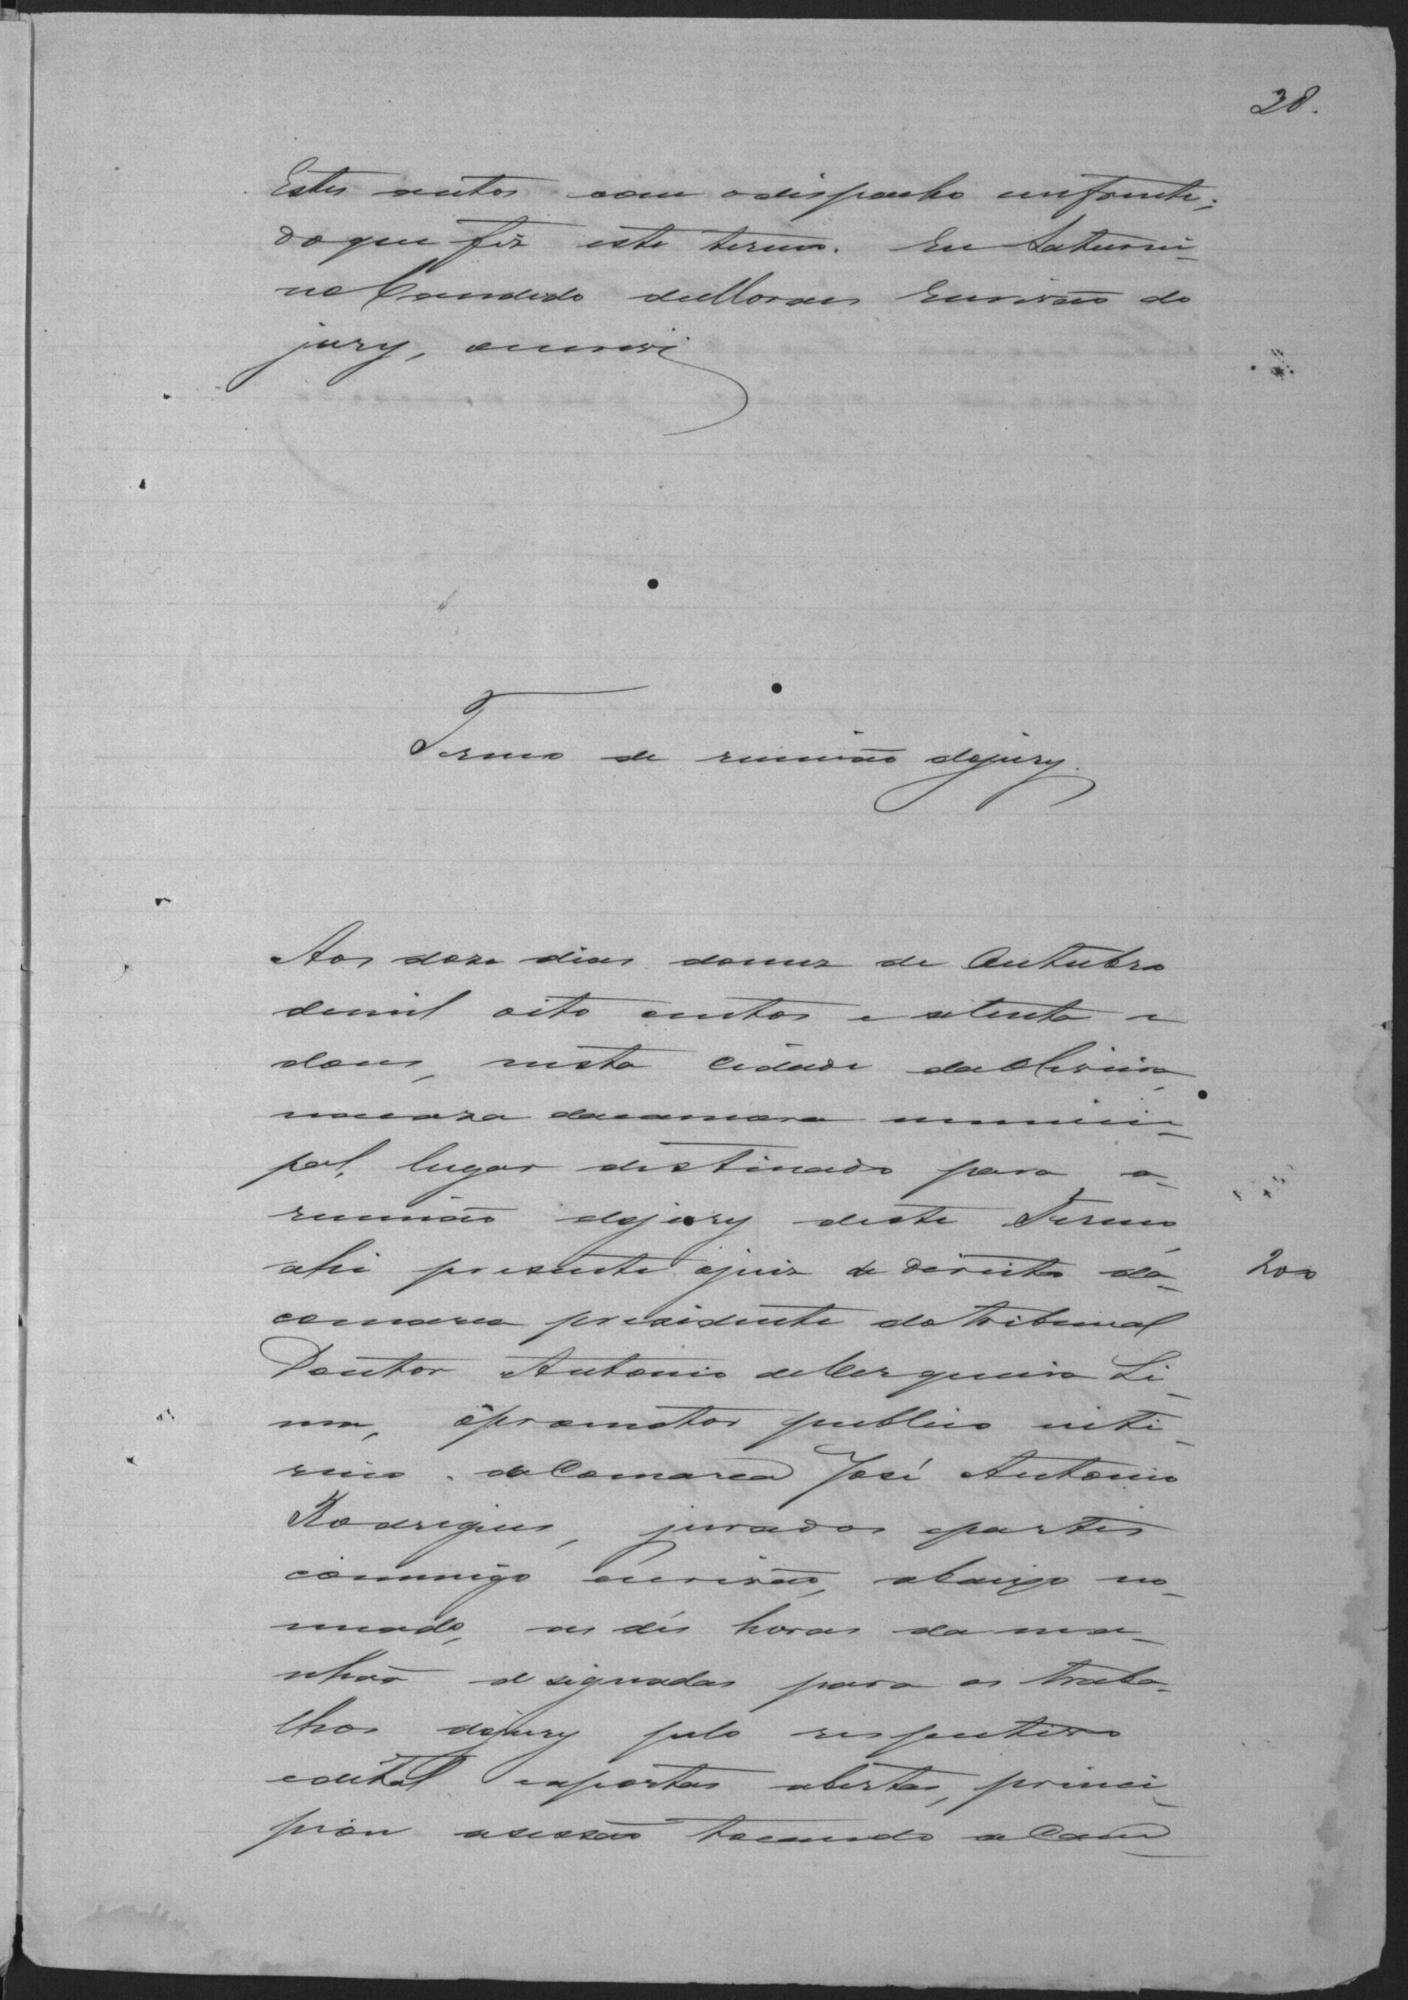 28.
Estes autos com o dispacho emfrente;
do que fiz este termo. Eu Saturni-
no Candido de Moraes Escrivão do
jury, o escrevi
Termo de reunião do jury.
Aos doze dias do mez de Outubro
de mil oito centos e setenta e
dous, nesta Cidade da Oliveira,
na caza da camara munici-
pal, lugar destinado para a
reunião do jury deste Termo
ahi presente o juiz de direito da
comarca presidente do tribunal
Doutor Antonio de Cerqueira Li-
ma, o promotor publico inte-
rino da Comarca José Antonio
Rodrigues, jurados e partes
commigo escrivão, abaixo no-
meado, as dés horas da ma-
nhaã designadas para os traba-
lhos do jury pelo respectivo
edital e a portas abertas, princi-
piou a sessão tocando a Cam
200